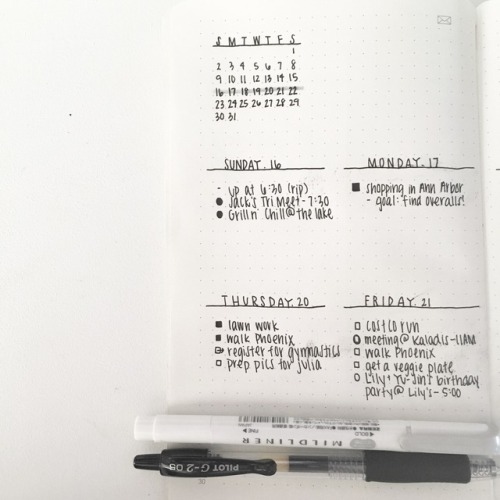 S M T W T F S
1
2 3 4 5 6 7 8
9 10 11 12 13 14 15
16 17 18 19 20 21 22
23 24 25 26 27 28 29
30 31
SUNDAY. 16
- up at 6:30 (rip)
Jack's Tri Meet - 7:30
Grill n' Chill @ the lake
MONDAY. 17
shopping in Ann Arbor
- goal: find overalls!
THURSDAY. 20
lawn work
walk Phoenix
register for gymnastics
prep pics for Julia
FRIDAY. 21
costco run
meeting @ Kaladis - 11AM
walk Phoenix
get a veggie plate
Lily + Yu-Jin's birthday
party @ Lily's - 5:00
MILDLINER
BOLD
FINE
PILOT G-2 05
30